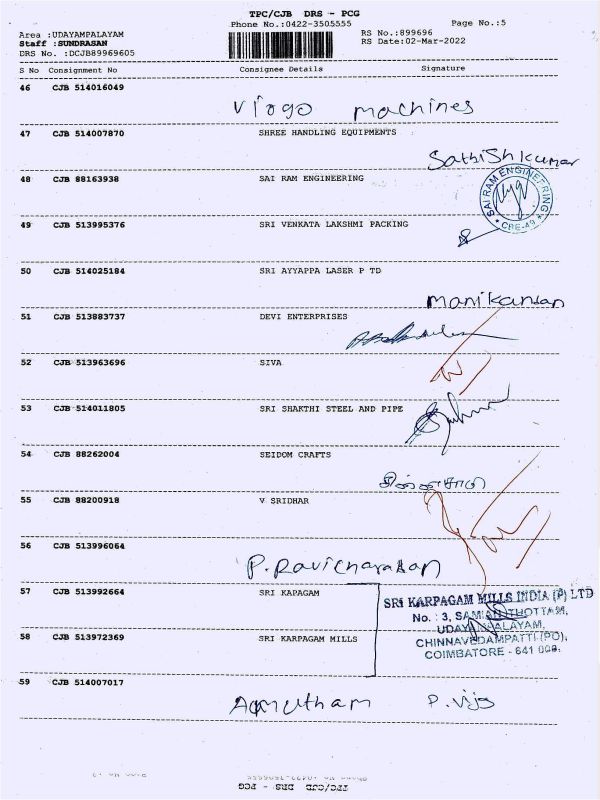 TPC/CJB DRS - PCG
Phone No.:0422-3505555 Page No.:5
Area :UDAYAMPALAYAM RS No.:899696
Staff :SUNDRASAN RS Date:02-Mar-2022
DRS No. :DCJB89969605
S No Consignment No Consignee Details Signature
46 CJB 514016049
Virgo machines
47 CJB 514007870 SHREE HANDLING EQUIPMENTS
Sathish kumar
48 CJB 88163938 SAI RAM ENGINEERING
SAI RAM ENGINEERING
CBE-49
49 CJB 513995376 SRI VENKATA LAKSHMI PACKING
50 CJB 514025184 SRI AYYAPPA LASER P TD
manikandan
51 CJB 513883737 DEVI ENTERPRISES
52 CJB 513963696 SIVA
53 CJB 514011805 SRI SHAKTHI STEEL AND PIPE
54 CJB 88262004 SEIDOM CRAFTS
55 CJB 88200918 V SRIDHAR
56 CJB 513996064
57 CJB 513992664 SRI KAPAGAM
SRI KARPAGAM MILLS INDIA (P) LTD
No. : 3, SAMIAN THOTTAM,
UDAYAMPALAYAM,
CHINNAVEDAMPATTI (PO),
COIMBATORE - 641 009.
58 CJB 513972369 SRI KARPAGAM MILLS
59 CJB 514007017
P. vijo
TPC/CJB DRS - PCG